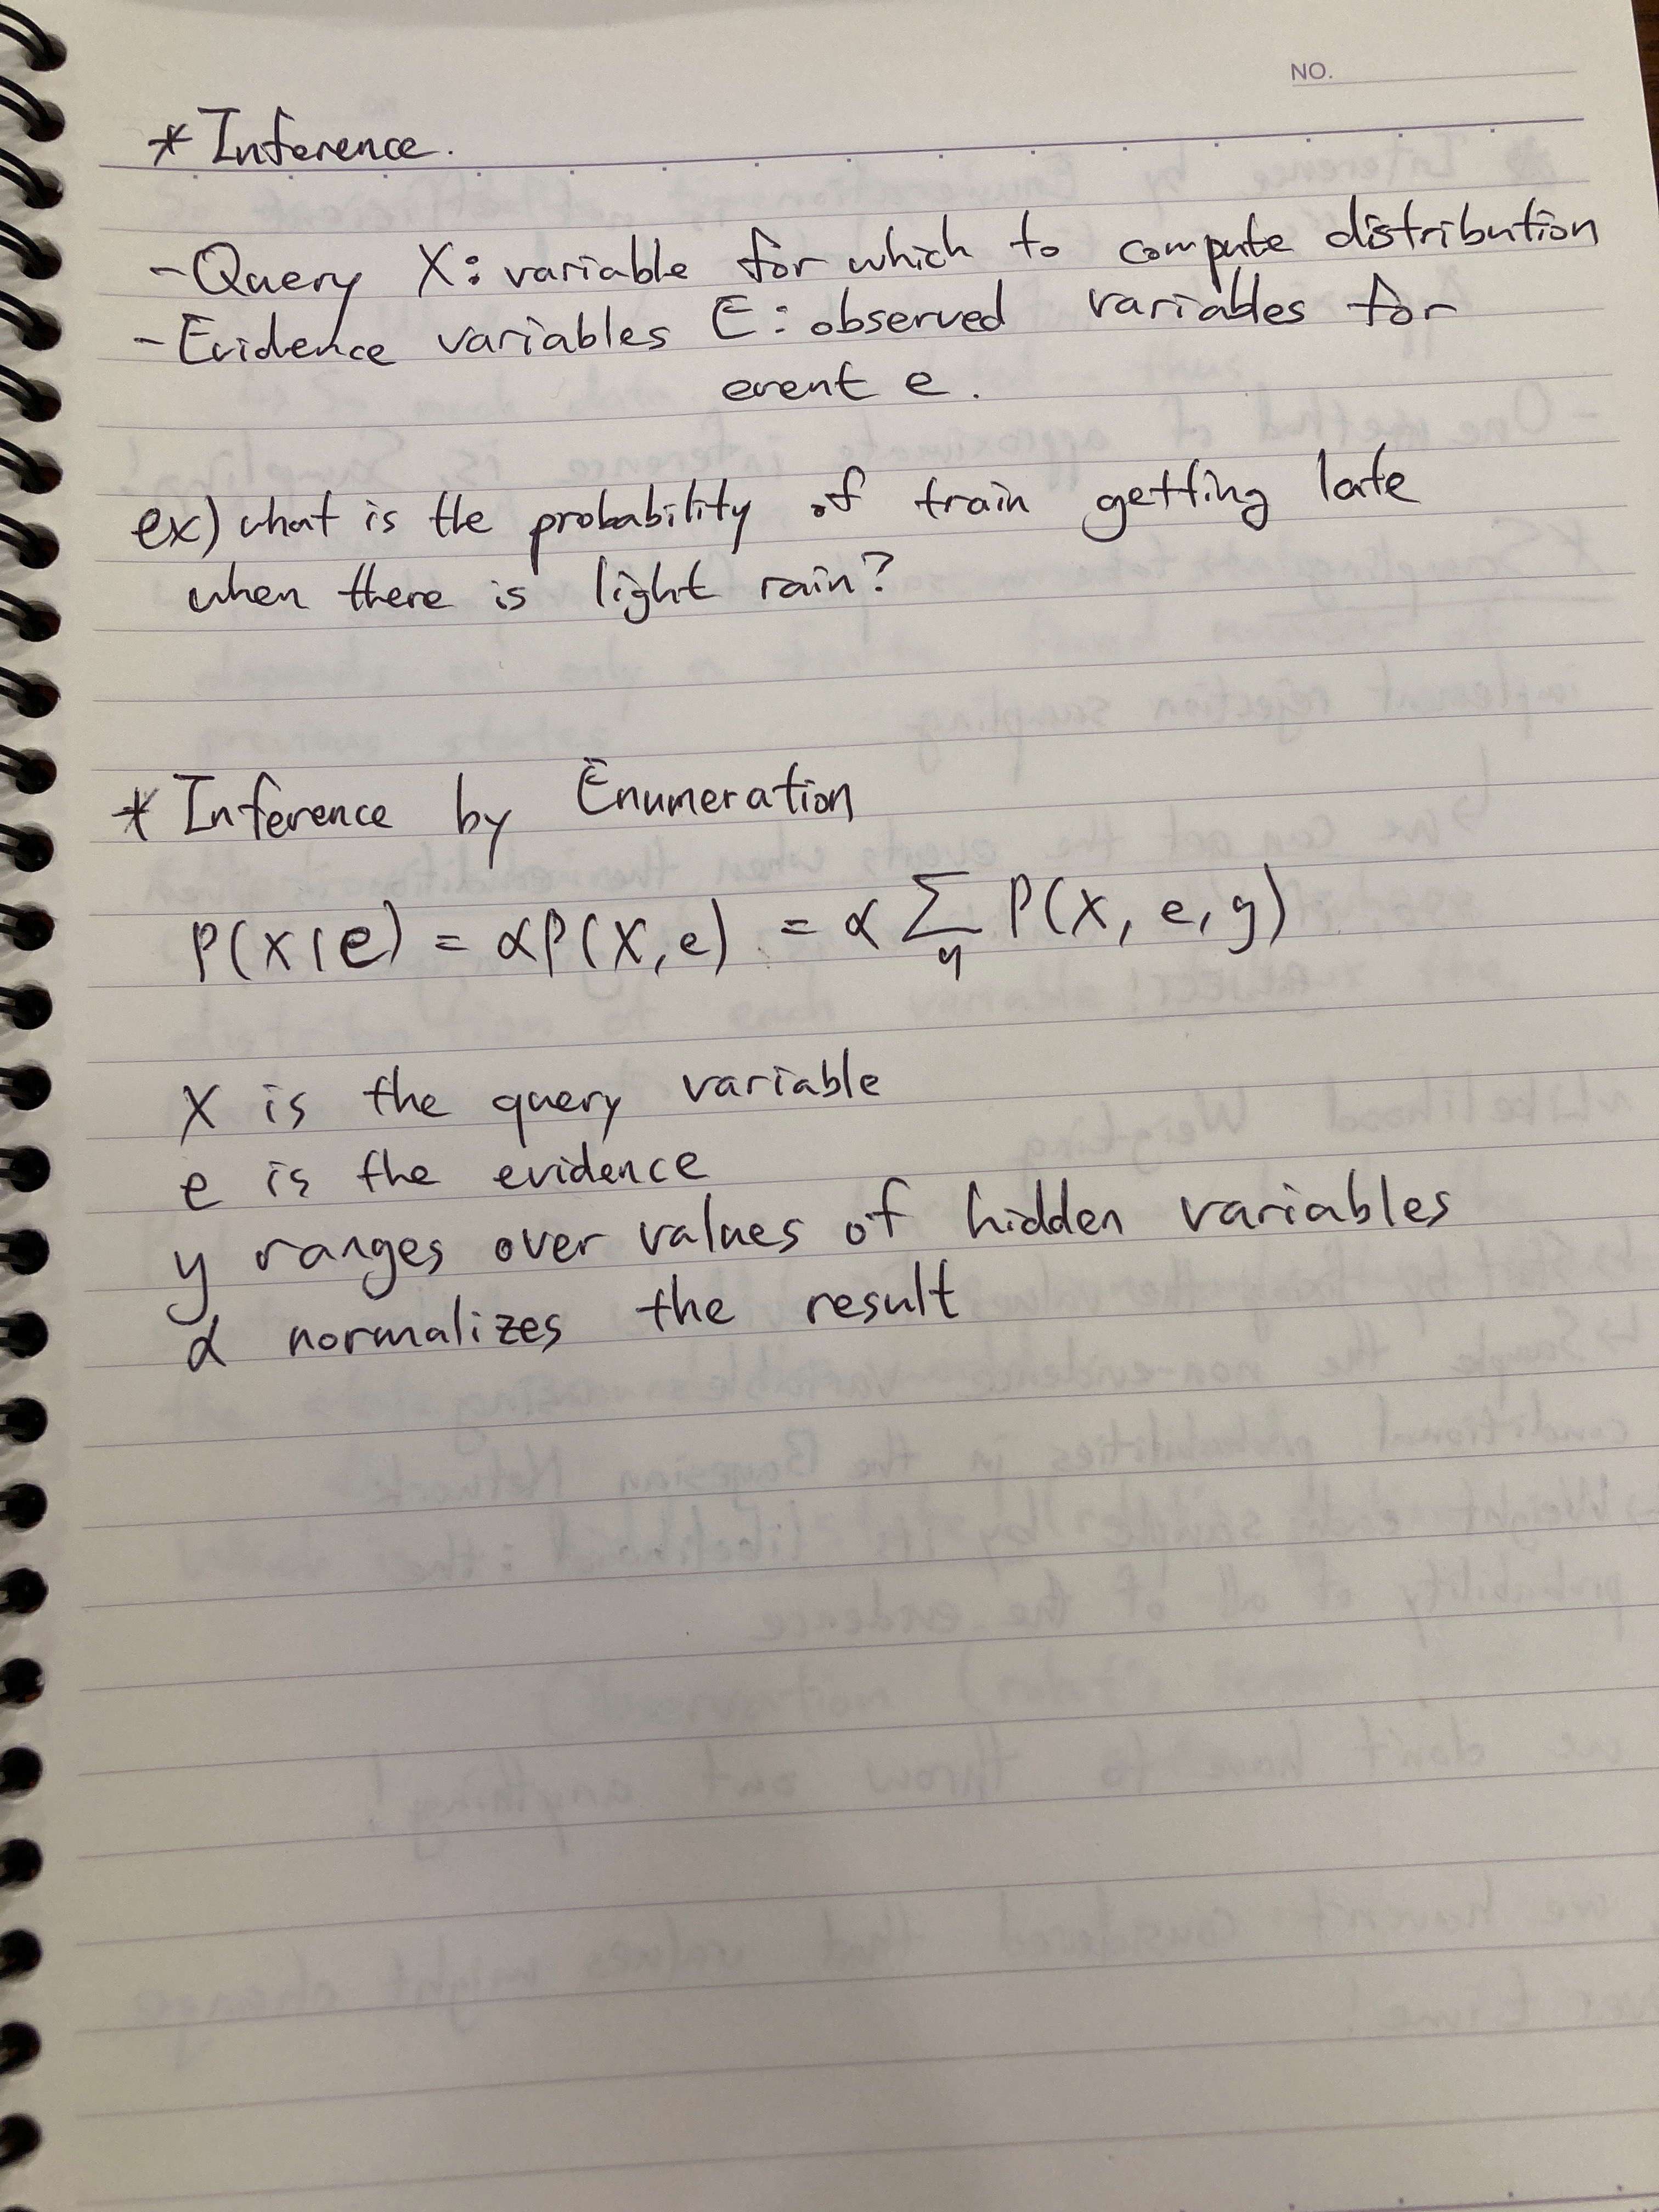 NO.
* Inference.
- Query X: variable for which to compute distribution
- Evidence variables E: observed variables for
event e.
ex) what is the probability of train getting late
when there is light rain?
* Inference by Enumeration
P(X|e) = αP(X,e) = α ∑_y P(X, e, y)
X is the query variable
e is the evidence
y ranges over values of hidden variables
α normalizes the result